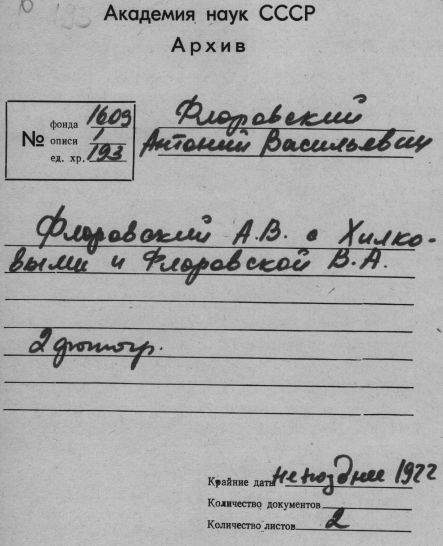 Академия наук СССР
Архив
№ фонда 1609
описи 1
ед. хр. 193
Флоровский
Антоний Васильевич
Флоровский А.В. с Хилко-
выми и Флоровской В.А.
2 фотогр.
Крайние даты не позднее 1922
Количество документов
Количество листов 2